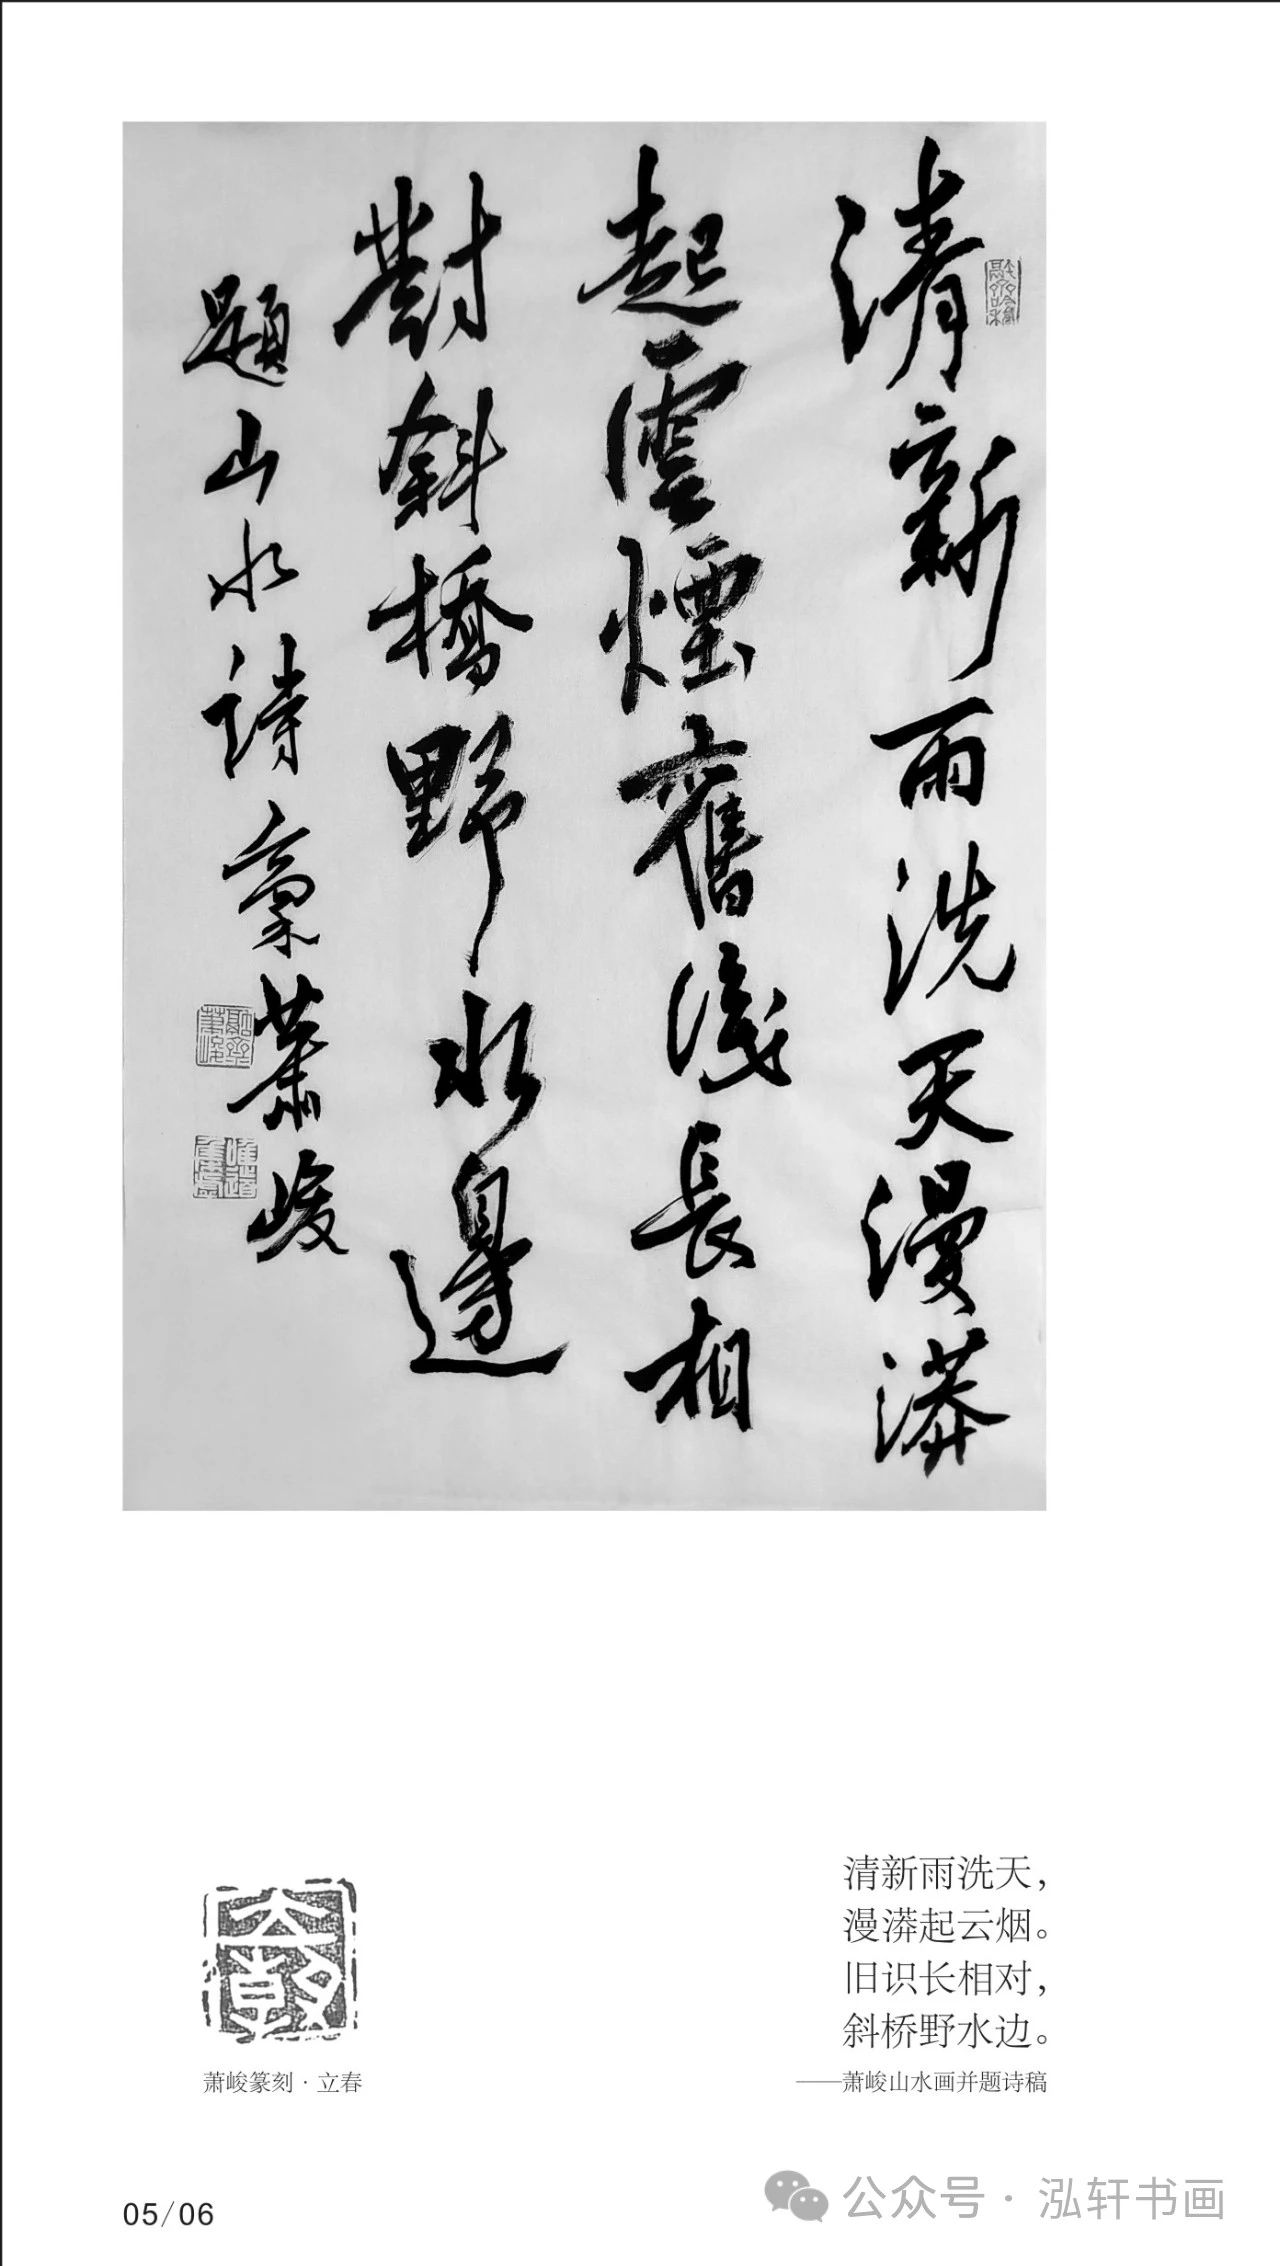 清新雨洗天漫漭
起雲煙舊識長相
對斜橋野水邊
題山水詩稾蕭峻
清新雨洗天，
漫漭起云烟。
旧识长相对，
斜桥野水边。
——萧峻山水画并题诗稿
萧峻篆刻·立春
05/06
公众号·泓轩书画